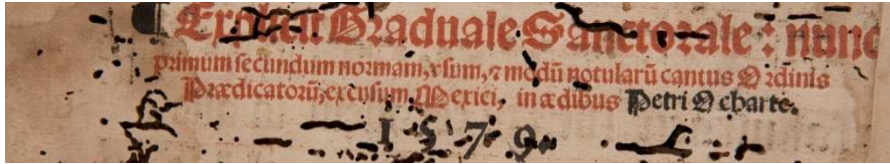 Explicit Graduale Sanctorale : nunc
primum secundum normam, vsum, ⁊ modū notularū cantus Ordinis
Prædicatorū, excusum Mexici, in ædibus Petri Ocharte.
1579.